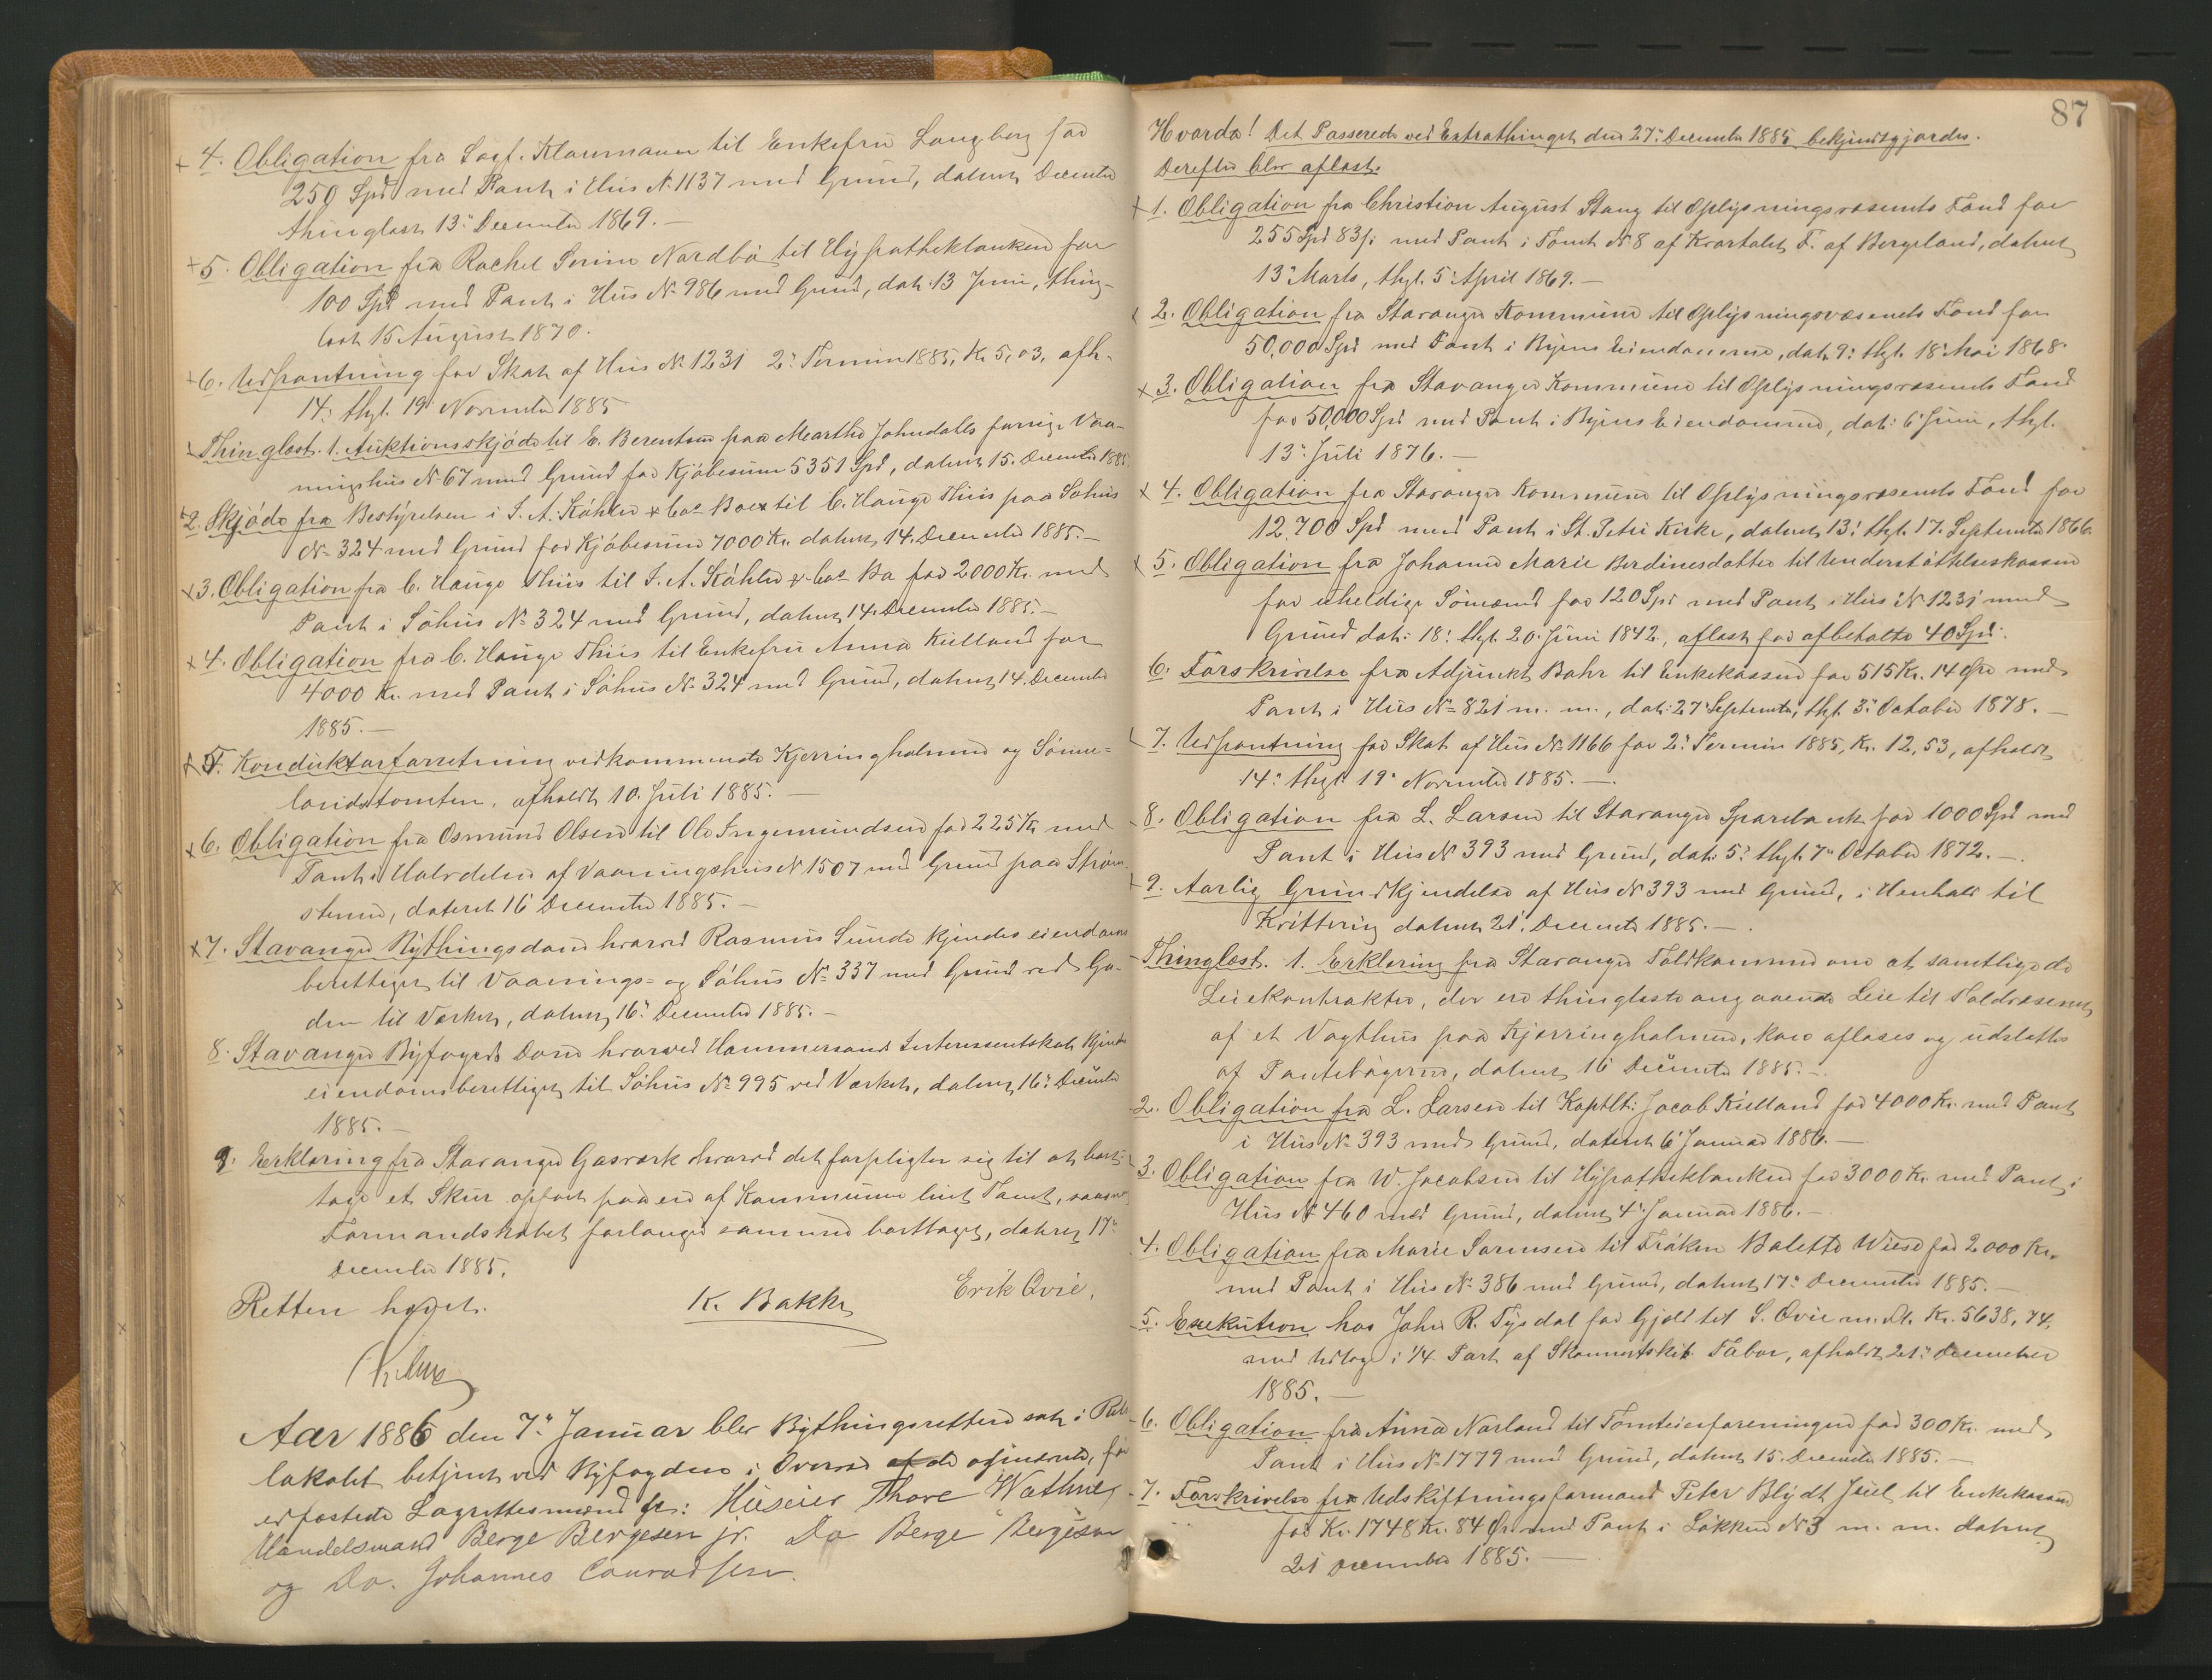 4. Obligation fra Sagf. Klaumann til Enkefru Langberg for
250 Spd med Pant i Hus № 1137 med Grund, dateret December
thinglæst 13de December 1869. —
5. Obligation fra Rachel Serine Nordbö til Hypothekbanken for
100 Spd med Pant i Hus № 986 med Grund, dat. 13 Juni, thing-
læst 15 August 1870.
6. Udpantning for Skat af Hus № 1231 2. Termin 1885, Kr. 5,03, afh.
14. thgl. 19. November 1885
Thinglæst. 1. Auktionsskjöde til E. Berentsen paa Marthe Johndatters forrige Vaa-
ningshus № 67 med Grund for Kjöbesum 5351 Spd, dateret 15. December 1885
2. Skjöde fra Bestyrelsen i S. A. Köhler & Co's Bo til C. Hauge Thiis paa Söhus
№ 324 med Grund for Kjöbesum 7000 Kr. dateret 14. December 1885. —
3. Obligation fra C. Hauge Thiis til S. A. Köhler & Co's Bo for 2000 Kr. med
Pant i Söhus № 324 med Grund, dateret 14. December 1885. —
4. Obligation fra C. Hauge Thiis til Enkefru Anna Kielland for
4000 Kr. med Pant i Söhus № 324 med Grund, dateret 14. December
1885. —
5. Konduktørforretning vedkommende Kjerringholmen og Sömme-
landstomten, afholdt 10. Juli 1885. —
6. Obligation fra Osmund Olsen til Ole Ingemundsen for 225 Kr med
Pant i Halvdelen af Vaaningshus № 1507 med Grund paa Ström-
stenen, dateret 16 December 1885. —
7. Stavanger Bythingsdom hvorved Rasmus Sunde kjendes eiendoms
berettiget til Vaanings- og Söhus № 337 med Grund ved Ga-
den til Værket, dateret 16. December 1885. —
8. Stavanger Byfogeds Dom hvorved Hammersands Interessentskab kjendes
eiendomsberettiget til Söhus № 995 ved Værket, dateret 16. December
1885. —
9. Erklæring fra Stavanger Gasværk hvorved det forpligter sig til at bort-
tage et Skur opfört paa en af Kommunen leiet Tomt, saasnart
Formandskabet forlanger samme borttaget, dateret 17.
December 1885.
Retten hævet.
K. Bakke
Erik Qvie,
Aar 1886 den 7. Januar blev Bythingsretten sat i Rets
lokalet betjent ved Byfogden i Overvær af de opnævnte, for
edfæstede Lagrettesmænd Hr: Huseier Thore Wathne,
Handelsmand Berge Bergesen jr. Do Berge Bergesen
og Do. Johannes Conradsen.
87
Hvorda! Det Passerede ved Extrathinget den 27. December 1885 bekjendtgjordes.
Derefter blev aflæst.
1. Obligation fra Christian August Stang til Oplysningsvæsenets Fond for
255 Spd 83 ß med Pant i Tomt № 8 af Kvartalet F. af Bergeland, dateret
13. Marts, thgl. 5. April 1869. —
2. Obligation fra Stavanger Kommune til Oplysningsvæsenets Fond for
50,000 Spd med Pant i Byens Eiendomme, dat. 9. thgl. 18. Mai 1868.
3. Obligation fra Stavanger Kommune til Oplysningsvæsenets Fond
for 50,000 Spd med Pant i Byens Eiendomme, dat. 6. Juni, thgl.
13. Juli 1876. —
4. Obligation fra Stavanger Kommune til Oplysningsvæsenets Fond for
12,700 Spd med Pant i St. Petri Kirke, dateret 13. thgl. 17. September 1866.
5. Obligation fra Johanne Marie Berdinesdatter til Understöttelseskassen
for uheldige Sömænd for 120 Spd med Pant i Hus № 1231 med
Grund dat. 18. thgl. 20. Juni 1842, aflæst for afbetalte 40 Spd.
6. Forskrivelse fra Adjunkt Bahr til Enkekassen for 515 Kr. 14 Øre med
Pant i Hus № 821 m. m., dat. 27. September, thgl. 3. October 1878. —
7. Udpantning for Skat af Hus № 1166 for 2. Termin 1885, Kr. 12,53, afholdt
14. thgl. 19. November 1885. —
8. Obligation fra L. Larsen til Stavanger Sparebank for 1000 Spd med
Pant i Hus № 393 med Grund, dat. 5. thgl. 7. October 1872. —
9. Aarlig Grundkjendelse af Hus № 393 med Grund, i Henhold til
Kvittering dateret 21. December 1885. —
Thinglæst. 1. Erklæring fra Stavanger Toldkammer om at samtlige de
Leiekontrakter, der ere thinglæste angaaende Leie til Toldvæsenet
af et Vagthus paa Kjerringholmen, kan aflæses og udslettes
af Pantebögerne, dateret 16 December 1885. —
2. Obligation fra L. Larsen til Kaptlt: Jacob Kielland for 4000 Kr. med Pant
i Hus № 393 med Grund, dateret 6. Januar 1886. —
3. Obligation fra W. Jacobsen til Hypothekbanken for 3000 Kr. med Pant i
Hus № 460 med Grund, dateret 4. Januar 1886. —
4. Obligation fra Marie Sørensen til Fröken Bolette Wiese for 2000 Kr.
med Pant i Hus № 386 med Grund, dateret 17. December 1885. —
5. Exekution hos John R. Tysdal for Gjæld til S. Qvie m. Fl. Kr. 5638,74,
med Udlæg i 1/4 Part af Skonnertskib Tabor, afholdt 21. December
1885. —
6. Obligation fra Anna Norland til Tomteierforeningen for 300 Kr. med
Pant i Hus № 1779 med Grund, dateret 15. December 1885. —
7. Forskrivelse fra Udskiftningsformand Peter Blydt Juel til Enkekassen
for Kr. 1748 Kr. 84 Ør. med Pant i Lökken № 3 m. m. dateret
21 December 1885. —